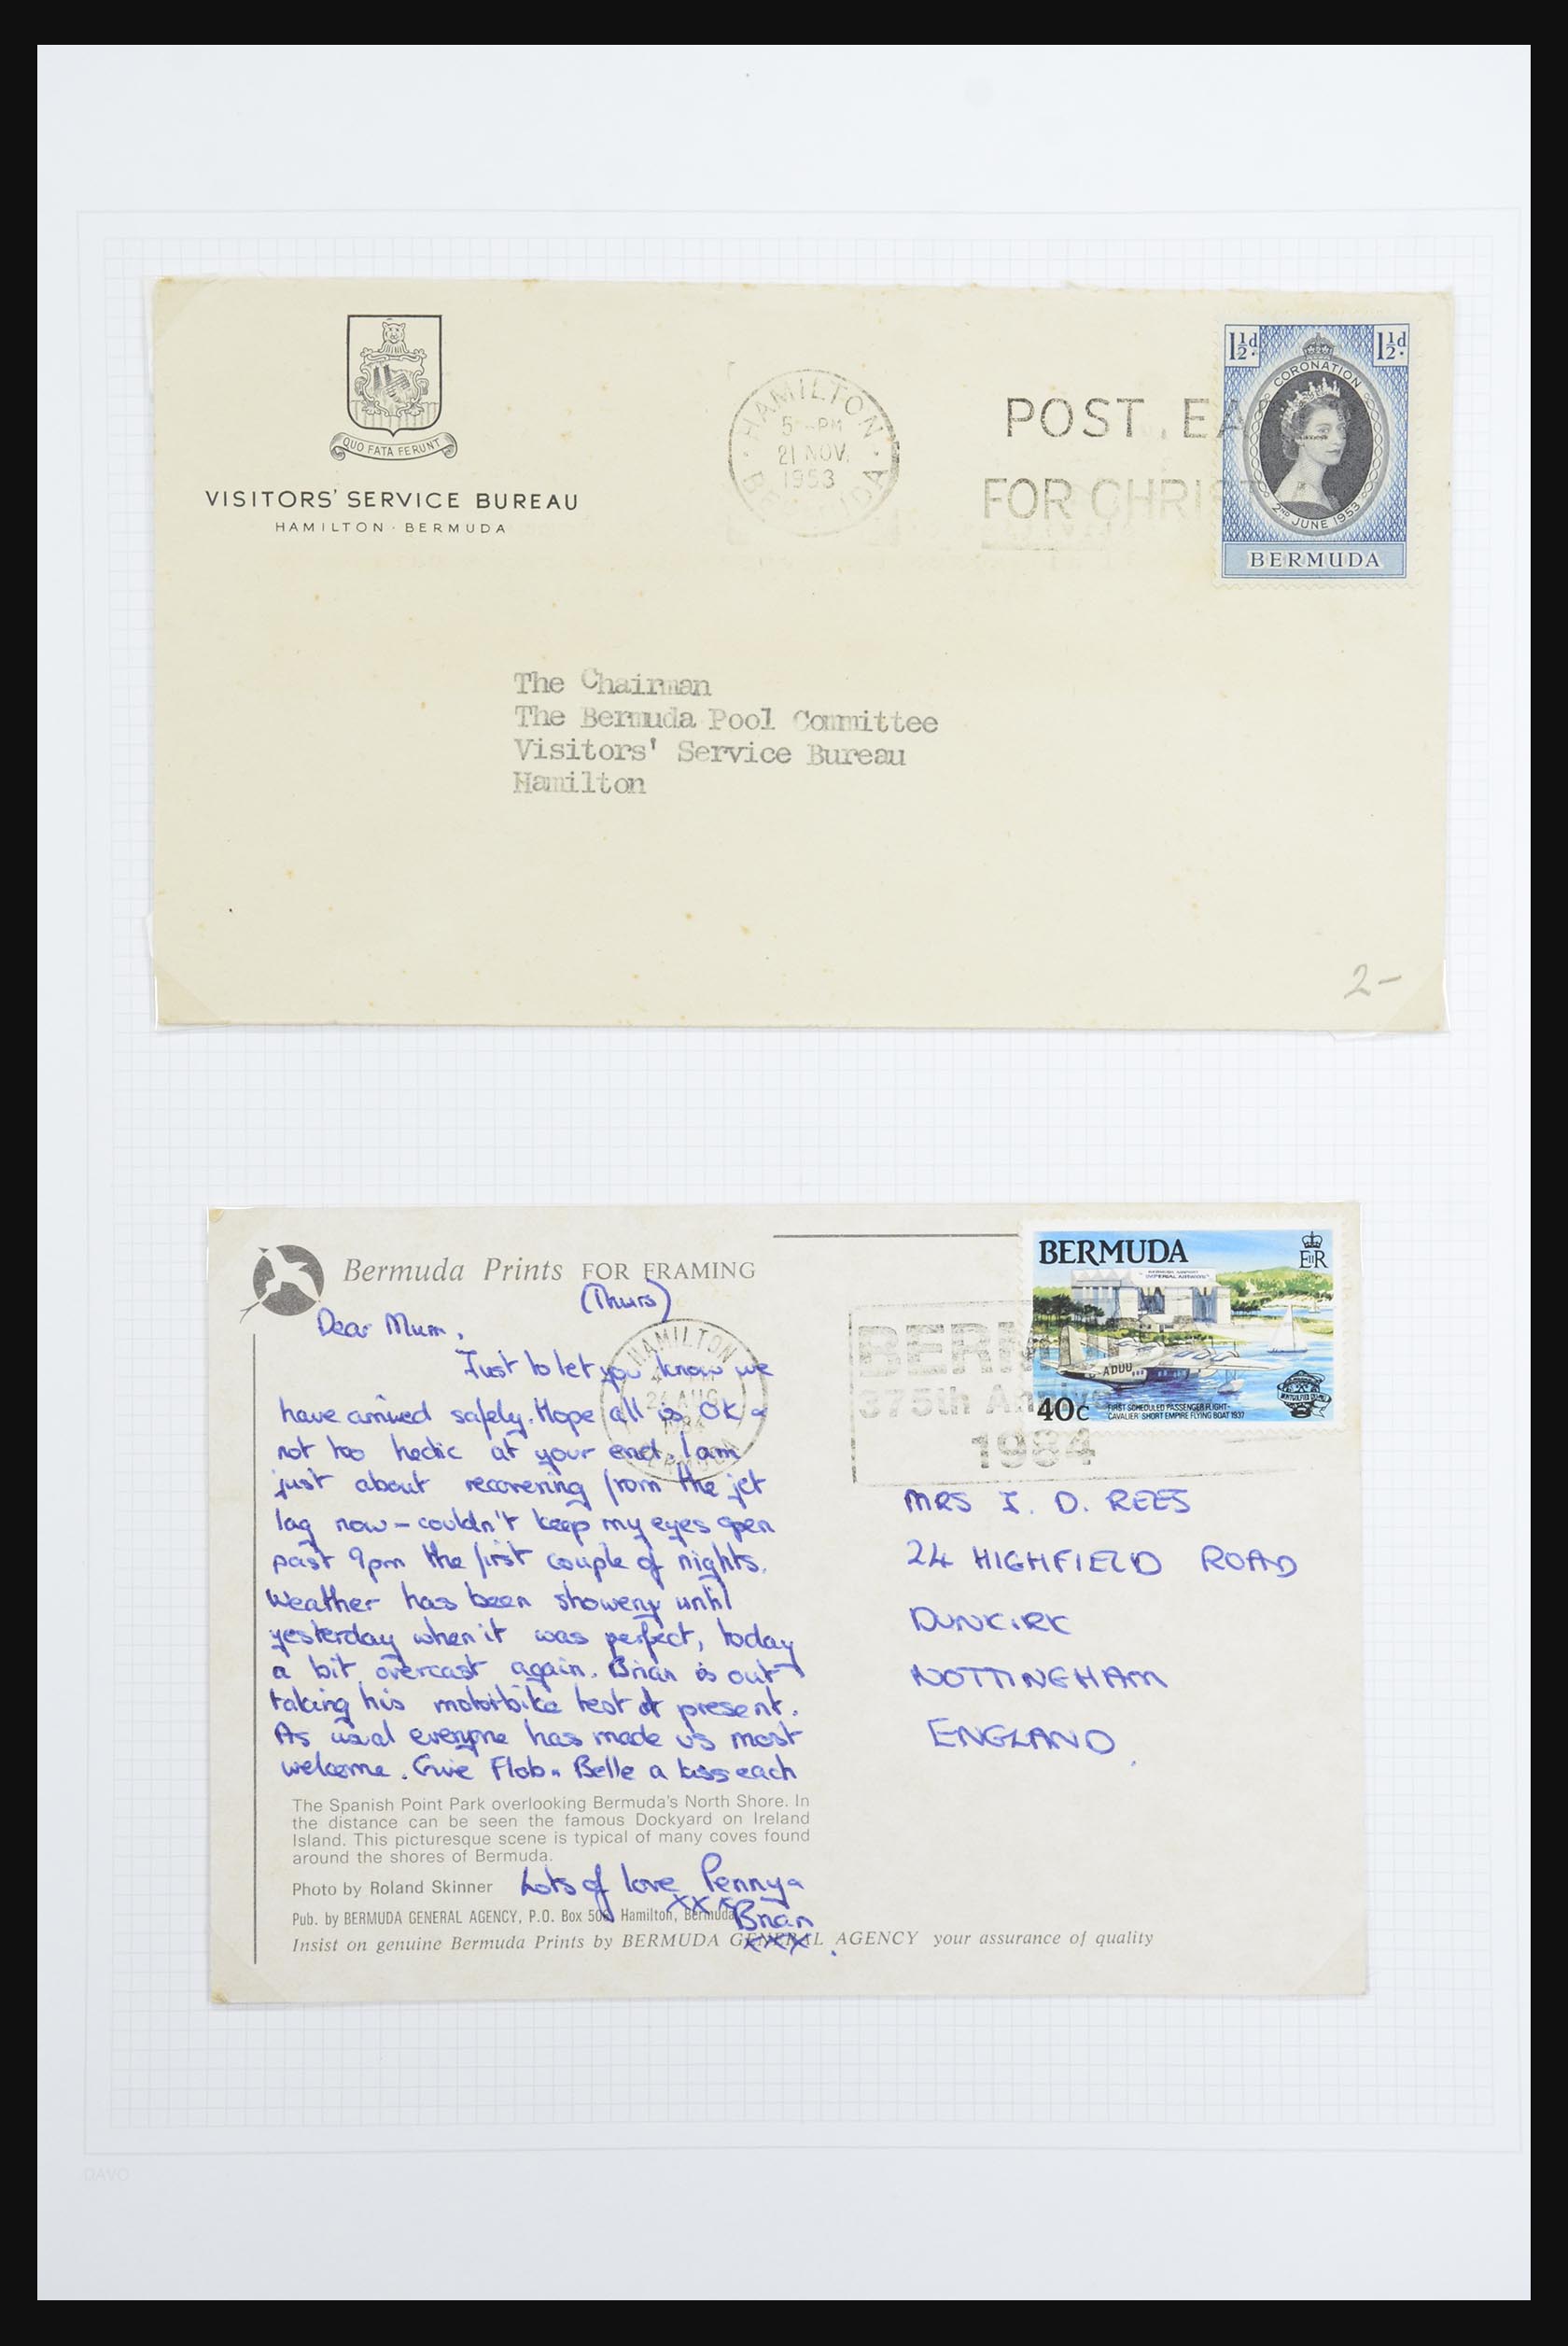 QUO FATA FERUNT
VISITORS' SERVICE BUREAU
HAMILTON · BERMUDA
HAMILTON
5 - PM
21 NOV.
1953
BERMUDA
POST EA
FOR CHRIST
1½d. 1½d.
CORONATION
2ND JUNE 1953
BERMUDA
The Chairman
The Bermuda Pool Committee
Visitors' Service Bureau
Hamilton
2-
Bermuda Prints FOR FRAMING
(Thurs)
Dear Mum,
Just to let you know we
have arrived safely. Hope all is OK &
not too hectic at your end. I am
just about recovering from the jet
lag now – couldn't keep my eyes open
past 9pm the first couple of nights.
Weather has been showery until
yesterday when it was perfect, today
a bit overcast again. Brian is out
taking his motorbike test at present.
As usual everyone has made us most
welcome. Give Flob & Belle a kiss each
The Spanish Point Park overlooking Bermuda's North Shore. In
the distance can be seen the famous Dockyard on Ireland
Island. This picturesque scene is typical of many coves found
around the shores of Bermuda.
Photo by Roland Skinner
Lots of love Penny &
xxx
Brian
xxx.
Pub. by BERMUDA GENERAL AGENCY, P.O. Box 506, Hamilton, Bermuda
Insist on genuine Bermuda Prints by BERMUDA GENERAL AGENCY your assurance of quality
HAMILTON
AUG
1984
BERMUDA
BERM
375th Annive
1984
BERMUDA
EIIR
IMPERIAL AIRWAYS
G-ADUU
40c
FIRST SCHEDULED PASSENGER FLIGHT-
CAVALIER SHORT EMPIRE FLYING BOAT 1937
MRS I. D. REES
24 HIGHFIELD ROAD
DUNKIRK
NOTTINGHAM
ENGLAND
DAVO